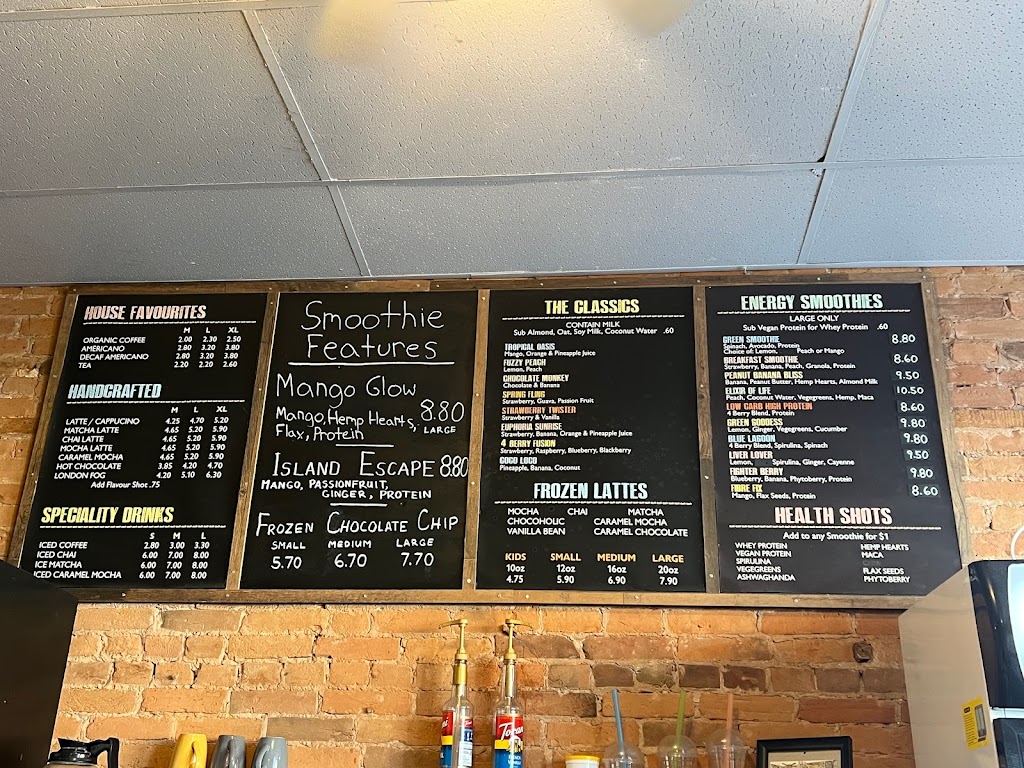 HOUSE FAVOURITES
M L XL
ORGANIC COFFEE 2.00 2.30 2.50
AMERICANO 2.80 3.20 3.80
DECAF AMERICANO 2.80 3.20 3.80
TEA 2.20 2.20 2.60
HANDCRAFTED
M L XL
LATTE / CAPPUCINO 4.25 4.70 5.20
MATCHA LATTE 4.65 5.20 5.90
CHAI LATTE 4.65 5.20 5.90
MOCHA LATTE 4.65 5.20 5.90
CARAMEL MOCHA 4.65 5.20 5.90
HOT CHOCOLATE 3.85 4.20 4.70
LONDON FOG 4.20 5.10 6.30
Add Flavour Shot .75
SPECIALITY DRINKS
S M L
ICED COFFEE 2.80 3.00 3.30
ICED CHAI 6.00 7.00 8.00
ICE MATCHA 6.00 7.00 8.00
ICED CARAMEL MOCHA 6.00 7.00 8.00
Smoothie
Features
Mango Glow
Mango, Hemp Hearts, 8.80
Flax, Protein LARGE
ISLAND ESCAPE 8.80
MANGO, PASSIONFRUIT,
GINGER, PROTEIN
FROZEN CHOCOLATE CHIP
SMALL MEDIUM LARGE
5.70 6.70 7.70
THE CLASSICS
CONTAIN MILK
Sub Almond, Oat, Soy Milk, Coconut Water .60
TROPICAL OASIS
Mango, Orange & Pineapple Juice
FUZZY PEACH
Lemon, Peach
CHOCOLATE MONKEY
Chocolate & Banana
SPRING FLING
Strawberry, Guava, Passion Fruit
STRAWBERRY TWISTER
Strawberry & Vanilla
EUPHORIA SUNRISE
Strawberry, Banana, Orange & Pineapple Juice
4 BERRY FUSION
Strawberry, Raspberry, Blueberry, Blackberry
COCO LOCO
Pineapple, Banana, Coconut
FROZEN LATTES
MOCHA CHAI MATCHA
CHOCOHOLIC CARAMEL MOCHA
VANILLA BEAN CARAMEL CHOCOLATE
KIDS SMALL MEDIUM LARGE
10oz 12oz 16oz 20oz
4.75 5.90 6.90 7.90
ENERGY SMOOTHIES
LARGE ONLY
Sub Vegan Protein for Whey Protein .60
GREEN SMOOTHIE 8.80
Spinach, Avocado, Protein
Choice of: Lemon, Peach or Mango
BREAKFAST SMOOTHIE 8.60
Strawberry, Banana, Peach, Granola, Protein
PEANUT BANANA BLISS 9.50
Banana, Peanut Butter, Hemp Hearts, Almond Milk
ELIXIR OF LIFE 10.50
Peach, Coconut Water, Vegegreens, Hemp, Maca
LOW CARB HIGH PROTEIN 8.60
4 Berry Blend, Protein
GREEN GODDESS 9.80
Lemon, Ginger, Vegegreens, Cucumber
BLUE LAGOON 9.80
4 Berry Blend, Spirulina, Spinach
LIVER LOVER 9.50
Lemon, Spirulina, Ginger, Cayenne
FIGHTER BERRY 9.80
Blueberry, Banana, Phytoberry, Protein
FIBRE FIX 8.60
Mango, Flax Seeds, Protein
HEALTH SHOTS
Add to any Smoothie for $1
WHEY PROTEIN HEMP HEARTS
VEGAN PROTEIN MACA
SPIRULINA
VEGEGREENS FLAX SEEDS
ASHWAGHANDA PHYTOBERRY
Torani